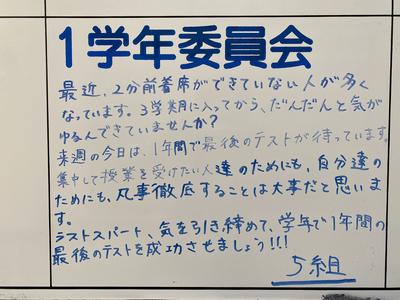 1学年委員会
最近、2分前着席ができていない人が多く
なっています。3学期に入ってから、だんだんと気が
ゆるんできていませんか?
来週の今日は、1年間で最後のテストが待っています。
集中して授業を受けたい人達のためにも、自分達の
ためにも、凡事徹底することは大事だと思いま
す。
ラストスパート、気を引き締めて、学年で1年間の
最後のテストを成功させましょう!!!
5組